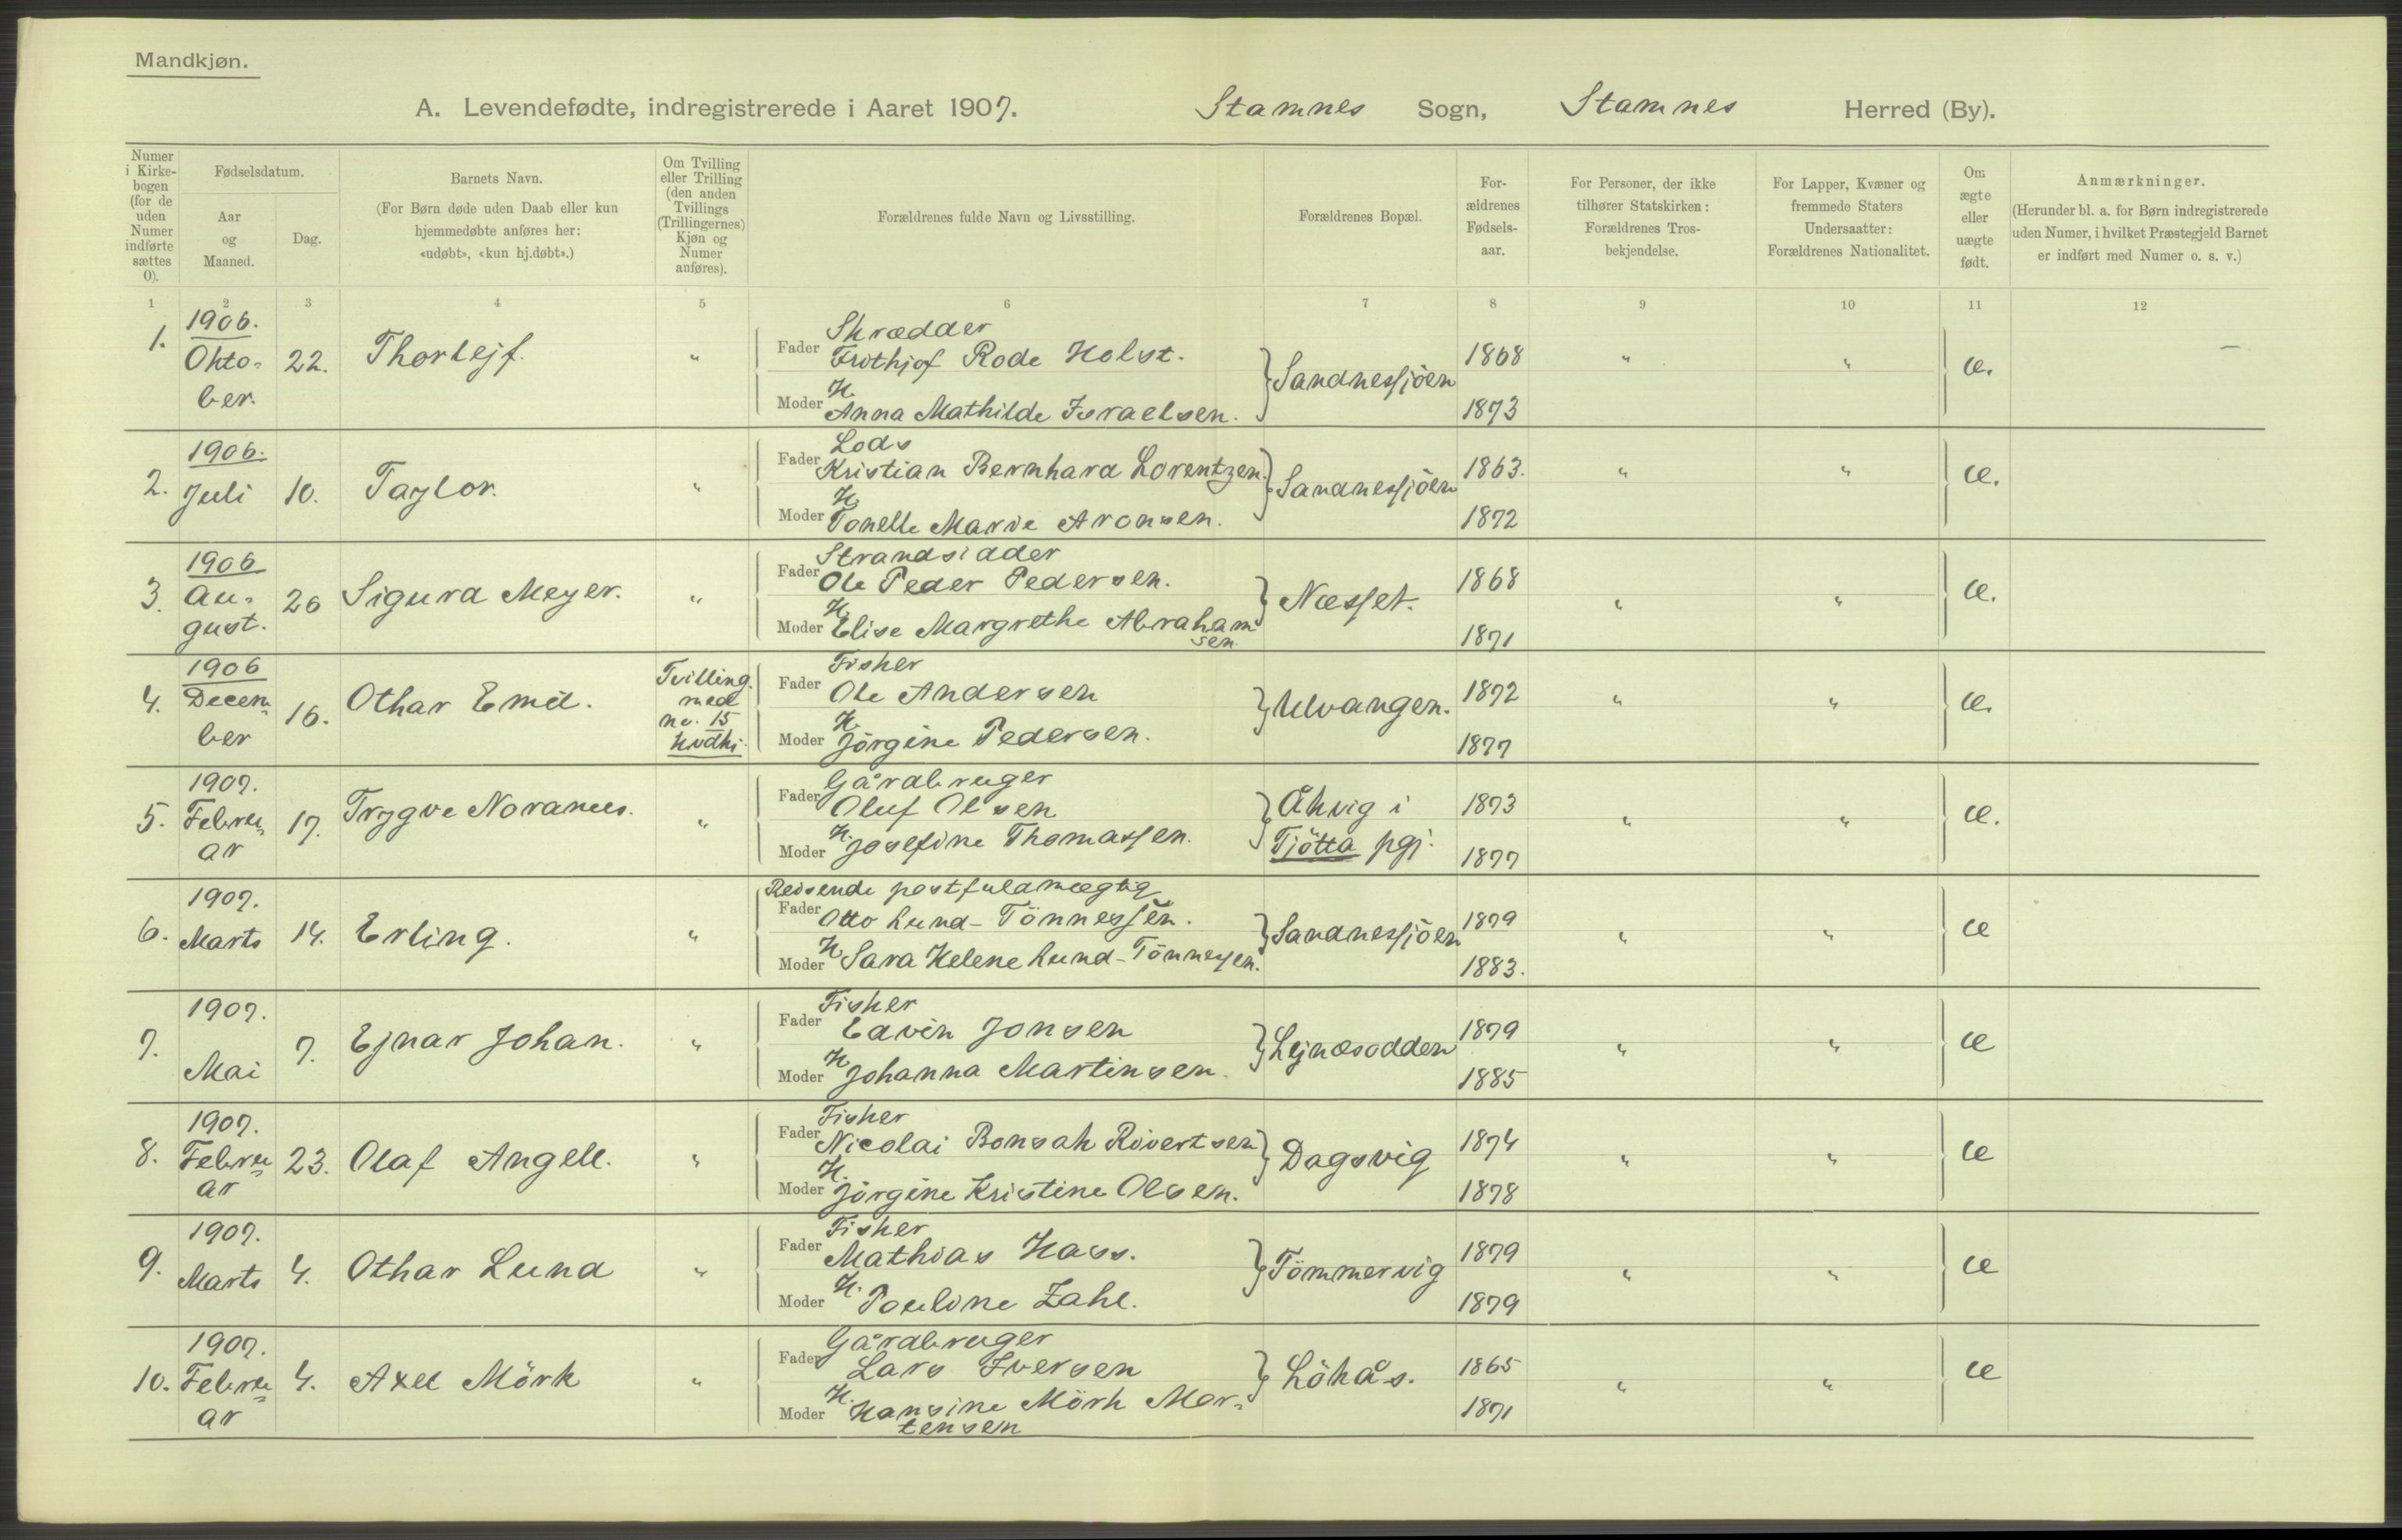 Mandkjøn.
A. Levendefødte, indregistrerede i Aaret 1907. Stamnes Sogn, Stamnes Herred (By).
Numer i Kirkebogen (for de uden Numer indførte sættes 0).
Fødselsdatum.
Aar og Maaned.
Dag.
Barnets Navn.
(For Børn døde uden Daab eller kun hjemmedøbte anføres her: «udøbt», «kun hj.døbt».)
Om Tvilling eller Trilling (den anden Tvillings (Trillingernes) Kjøn og Numer anføres).
Forældrenes fulde Navn og Livsstilling.
Forældrenes Bopæl.
For-ældrenes Fødsels-aar.
For Personer, der ikke tilhører Statskirken: Forældrenes Tros-bekjendelse.
For Lapper, Kvæner og fremmede Staters Undersaatter: Forældrenes Nationalitet.
Om ægte eller uægte født.
Anmærkninger.
(Herunder bl. a. for Børn indregistrerede uden Numer, i hvilket Præstegjeld Barnet er indført med Numer o. s. v.)
1 2 3 4 5 6 7 8 9 10 11 12
1. 1906. Okto-ber. 22. Thorlejf. "
Skrædder
Fader Frithjof Rode Holst. Sandnessjöen 1868 " " æ. –
H.
Moder Anna Mathilde Israelsen. 1873
2. 1906. Juli 10. Taylor. "
Lods
Fader Kristian Bernhard Lorentzen. Sandnessjöen 1863. " " æ.
H.
Moder Tonelle Marie Aronsen. 1872
3. 1906 Au-gust. 26 Sigurd Meyer. "
Strandsidder
Fader Ole Peder Pedersen. Næsset. 1868 " " æ.
H.
Moder Elise Margrethe Abraham
sen. 1871
4. 1906 Decem-ber 16. Othar Emil. Tvilling. med no. 15 kvdkj.
Fisker
Fader Ole Andersen Ulvangen. 1872 " " æ.
H.
Moder Jörgine Pedersen. 1877
5. 1907. Febru-ar 17. Trygve Noranus. "
Gårdbruger
Fader Oluf Olsen Åkvig i Tjötta pgj. 1873 " " æ.
H.
Moder Josefine Thomassen. 1877
6. 1907. Marts 14. Erling. "
Reisende postfuldmægtig
Fader Otto Lund-Tönnessen. Sandnessjöen 1879 " " æ
H.
Moder Sara Helene Lund-Tönnessen. 1883.
7. 1907. Mai 7. Ejnar Johan. "
Fisker
Fader Edvin Jonsen Lejnæsodden 1879 " " æ
H.
Moder Johanna Martinsen. 1885
8. 1907. Febru-ar 23. Olaf Angell. "
Fisker
Fader Nicolai Bonsak Rivertsen Dagsvig 1874 " " æ
H.
Moder Jörgine Kristine Olsen. 1878
9. 1907. Marts 4. Othar Lund "
Fisker
Fader Mathias Hass. Tömmervig 1879 " " æ
H.
Moder Pauline Zahl. 1879
10. 1907. Febru-ar 4. Axel Mörk "
Gårdbruger
Fader Lars Iversen Lökås. 1865 " " æ
H.
Moder Hansine Mörk Mor-
tensen 1871